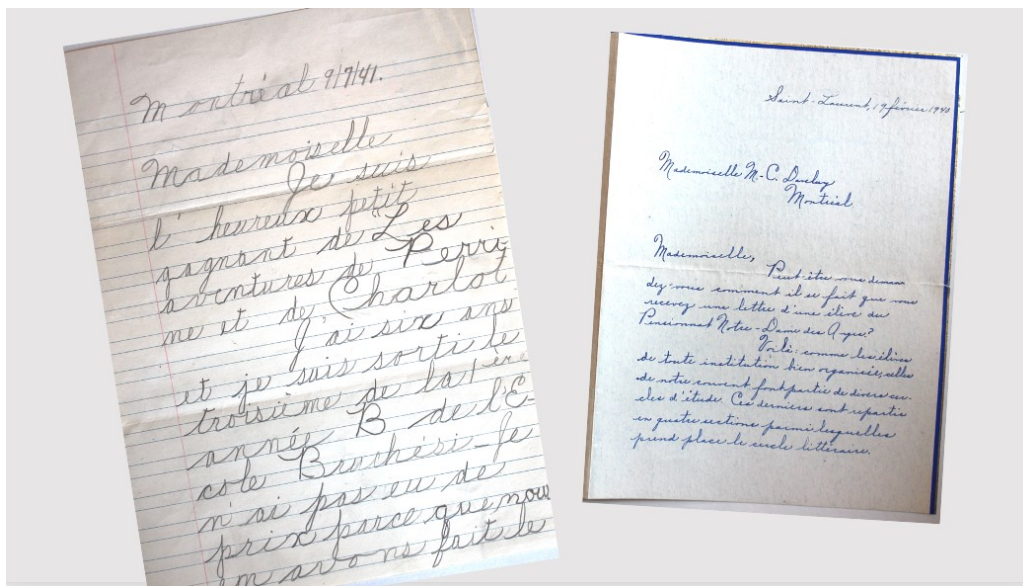 Montréal 9/7/41.
Mademoiselle
Je suis
l'heureux petit
gagnant de "Les
aventures de Perri
ne et de Charlot
J'ai six ans
et je suis sorti le
troisième de la 1ère
année B de l'É-
cole Bruchési-Je
n'ai pas eu de
prix parce que nous
en avons fait le
Saint-Laurent, 19 février 1940
Mademoiselle M-C. Daveluy
Montréal
Mademoiselle,
Peut-être vous deman
dez-vous comment il se fait que vous
recevez une lettre d'une élève du
Pensionnat Notre-Dame des Anges?
Voilà: comme les élèves
de toute institution bien organisée, celles
de notre couvent font partie de divers cer-
cles d'étude. Ces derniers sont repartis
en quatre sections parmi lesquelles
prend place le cercle littéraire.